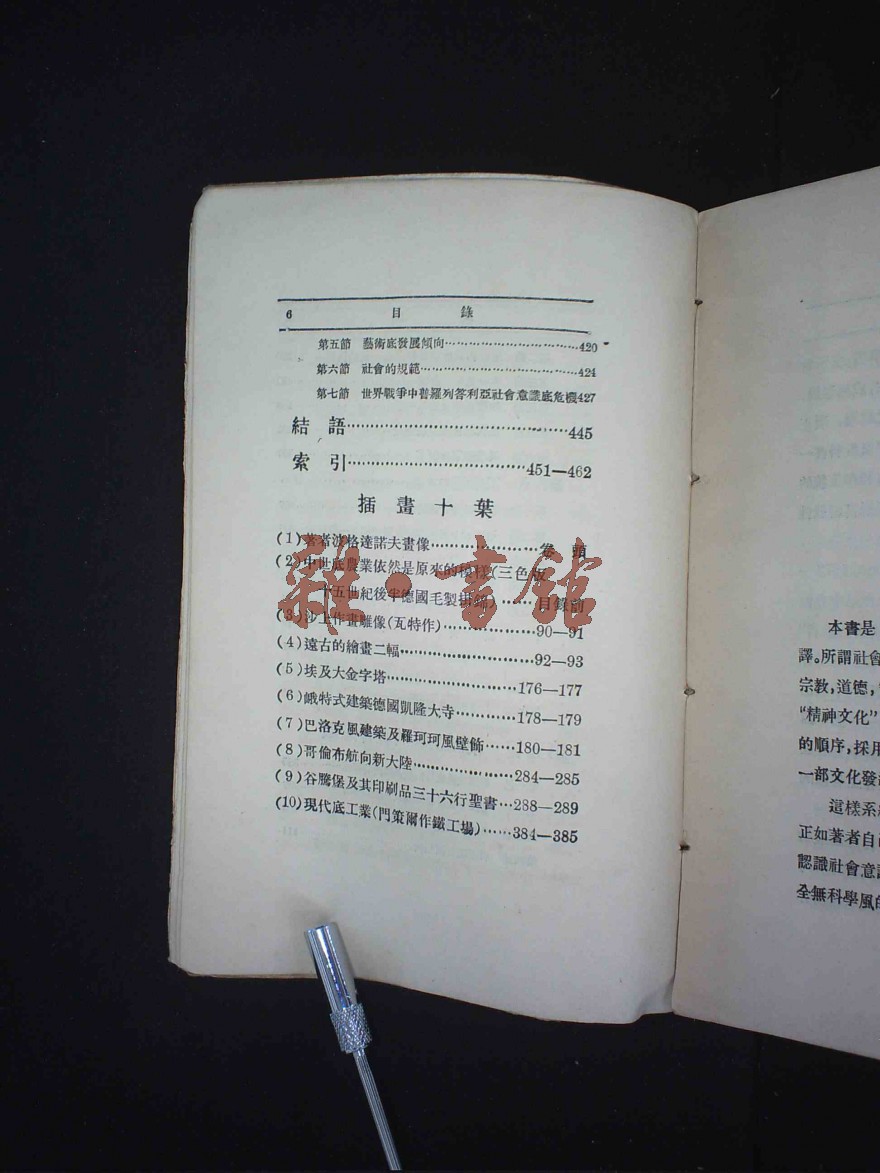 6 目錄
第五節 藝術底發展傾向……………………………420
第六節 社會的規範…………………………………424
第七節 世界戰爭中普羅列答利亞社會意識底危機427
結語……………………………………445
索引……………………………451—462
插畫十葉
(1)著者波格達諾夫畫像…………………卷頭
(2)中世底農業依然是原來的模樣(三色版
十五世紀後半德國毛製掛錦)……目錄前
(3)沙上作畫雕像(瓦特作)………………90—91
(4)遠古的繪畫二幅………………………92—93
(5)埃及大金字塔……………………176—177
(6)峨特式建築德國凱隆大寺………178—179
(7)巴洛克風建築及羅珂珂風壁飾……180—181
(8)哥倫布航向新大陸………………284—285
(9)谷騰堡及其印刷品三十六行聖書…288—289
(10)現代底工業(門策爾作鐵工場)……384—385
雜·書館
本書是
譯。所謂社會
宗教,道德,
“精神文化”
的順序,採用
一部文化發
這樣系
正如著者自
認識社會意
全無科學風的